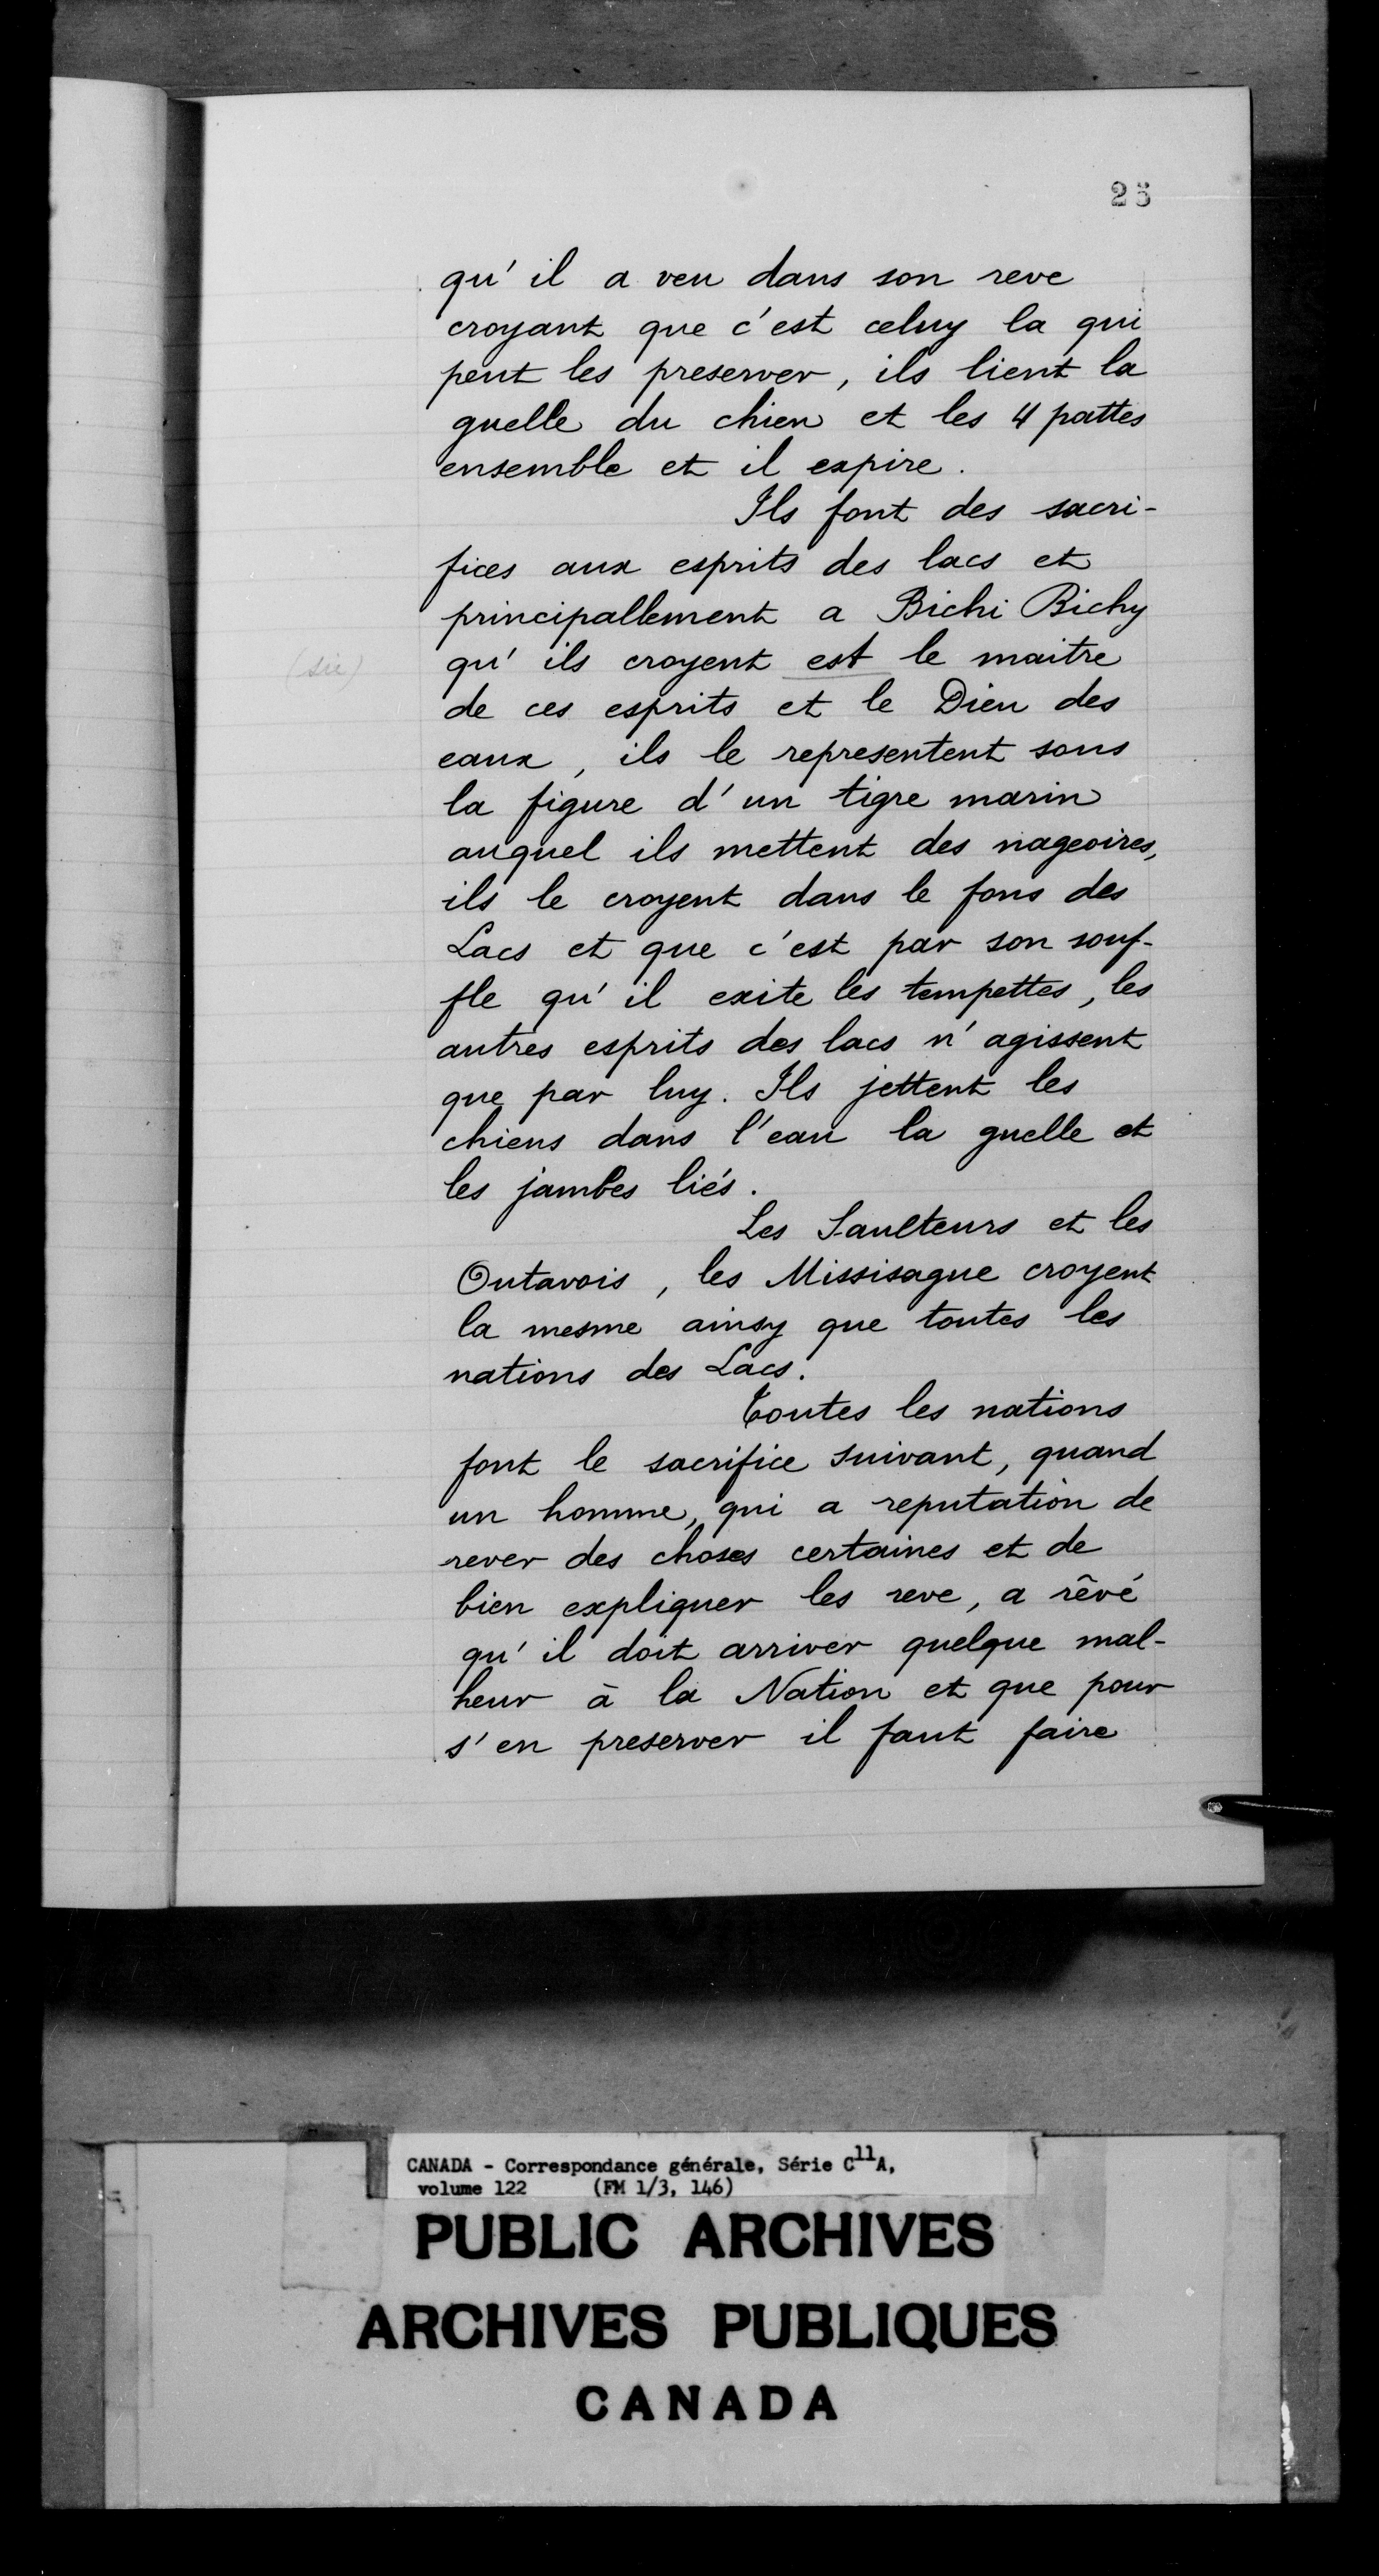 25
qu'il a veu dans son reve
croyant que c'est celuy la qui
peut les preserver, ils lient la
guelle du chien et les 4 pattes
ensemble et il expire.
Ils font des sacri-
fices aux esprits des lacs et
principallement a Bichi Bichy
(sic) qu'ils croyent est le maitre
de ces esprits et le Dieu des
eaux, ils le representent sous
la figure d'un tigre marin
auquel ils mettent des nageoires,
ils le croyent dans le fons des
Lacs et que c'est par son souf-
fle qu'il exite les tempettes, les
autres esprits des lacs n'agissent
que par luy. Ils jettent les
chiens dans l'eau la guelle et
les jambes liés.
Les Saulteurs et les
Outavois, les Missisague croyent
la mesme ainsy que toutes les
nations des Lacs.
Toutes les nations
font le sacrifice suivant, quand
un homme, qui a reputation de
rever des choses certaines et de
bien expliquer les reve, a rêvé
qu'il doit arriver quelque mal-
heur à la Nation et que pour
s'en preserver il faut faire
CANADA - Correspondance générale, Série C11A,
volume 122 (FM 1/3, 146)
PUBLIC ARCHIVES
ARCHIVES PUBLIQUES
CANADA